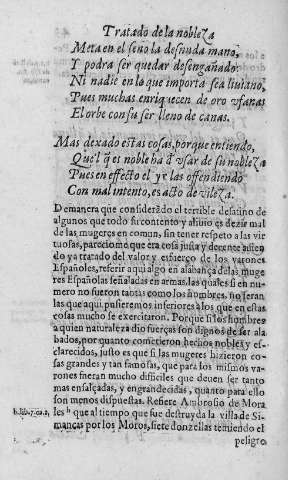 Tratado de la nobleza
Meta en el seno la desnuda mano,
Y podra ser quedar desengañado.
Ni nadie en lo que importa sea liuiano,
Pues muchas enriquecen de oro vfanas
El orbe con su ser lleno de canas.
Mas dexado estas cosas, porque entiendo,
Quel q̃ es noble ha d̃ vsar de su nobleza
Pues en effecto el yr las offendiendo
Con mal intento, es acto de vileza.
Demanera que considerãdo el terrible desatino de
algunos que todo su contento y aliuio es dezir mal
de las mugeres en comun, sin tener respeto a las vir
tuosas, pareciome que era cosa justa y decente auien
do ya tratado del valor y esfuerço de los varones
Españoles, referir aqui algo en alabãça de las muge
res Españolas señaladas en armas, las quales si en nu-
mero no fueron tantas como los hombres, no seran
las que aqui pusieremos inferiores a los que en estas
cosas mucho se exercitaron. Porque si los hombres
a quien naturaleza dio fuerças son dignos de ser ala
bados, por quanto cometieron hechos nobles y es-
clarecidos, justo es que si las mugeres hizieron co-
sas grandes y tan famosas, que para los mismos va-
rones fueran mucho difficiles que deuen ser tanto
mas ensalçadas, y engrandecidas, quanto para ello
son menos dispuestas. Refiere Ambrosio de Mora
h. lib. 7. ca. 2. les h que al tiempo que fue destruyda la villa de Si-
mancas por los Moros, siete donzellas teniendo el
peligro